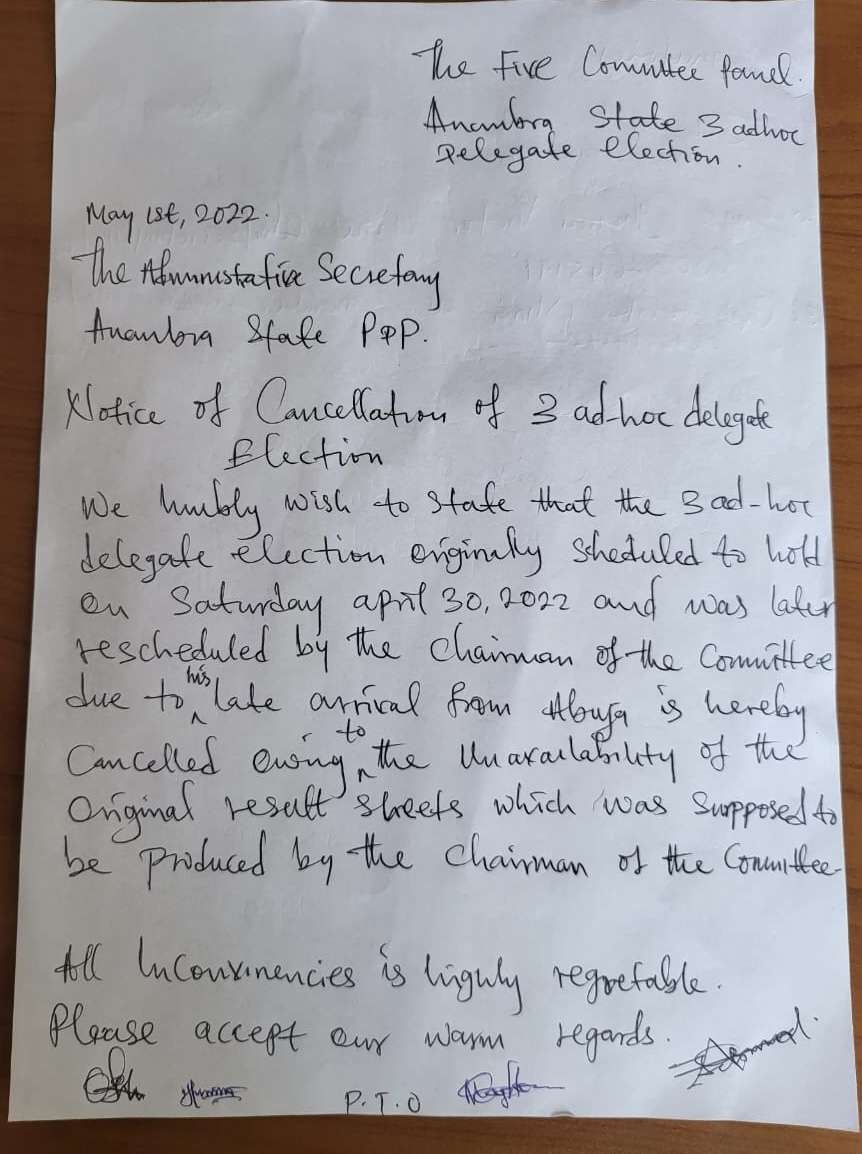 The Five Committee Panel.
Anambra State 3 adhoc
Delegate Election.
May 1st, 2022.
The Administrative Secretary
Anambra State PDP.
Notice of Cancellation of 3 ad-hoc delegate
Election
We humbly wish to state that the 3 ad-hoc
delegate election originally scheduled to hold
on Saturday april 30, 2022 and was later
rescheduled by the Chairman of the Committee
due to his late arrival from Abuja is hereby
Cancelled owing to the Unavailability of the
Original result sheets which was Surpposed to
be produced by the Chairman of the Committee.
All Inconvinencies is highly regretable.
Please accept our warm regards.
P.T.O